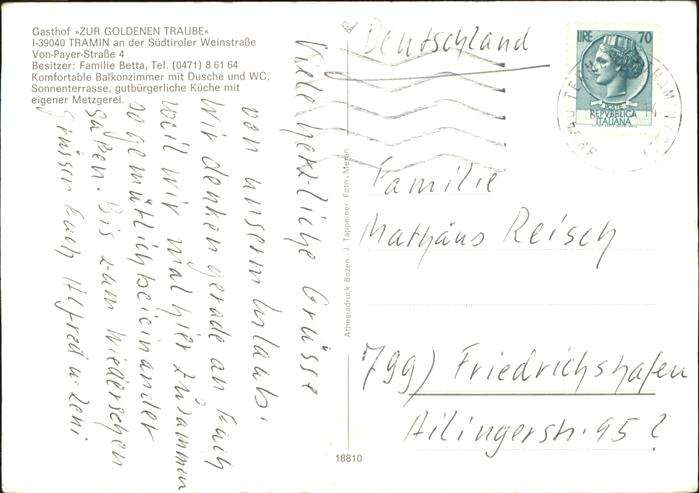 Gasthof »ZUR GOLDENEN TRAUBE«
I-39040 TRAMIN an der Südtiroler Weinstraße
Von-Payer-Straße 4
Besitzer: Familie Betta, Tel. (0471) 8 61 64
Komfortable Balkonzimmer mit Dusche und WC.
Sonnenterrasse, gutbürgerliche Küche mit
eigener Metzgerei.
Viele herzliche Grüsse
von unserm Urlaub.
Wir denken gerade an Euch
weil wir mal hier zusammen
so gemütlich beieinander
saßen. Bis zum Wiedersehen
grüssen Euch Alfred u. Zeni
Athesiadruck Bozen / Tappeiner Foto - Meran
18810
Deutschland
LIRE 70
POSTE
REPVBBLICA
ITALIANA
Familie
Mathäus Reisch
799) Friedrichshafen
Ailingerstr. 95 ?